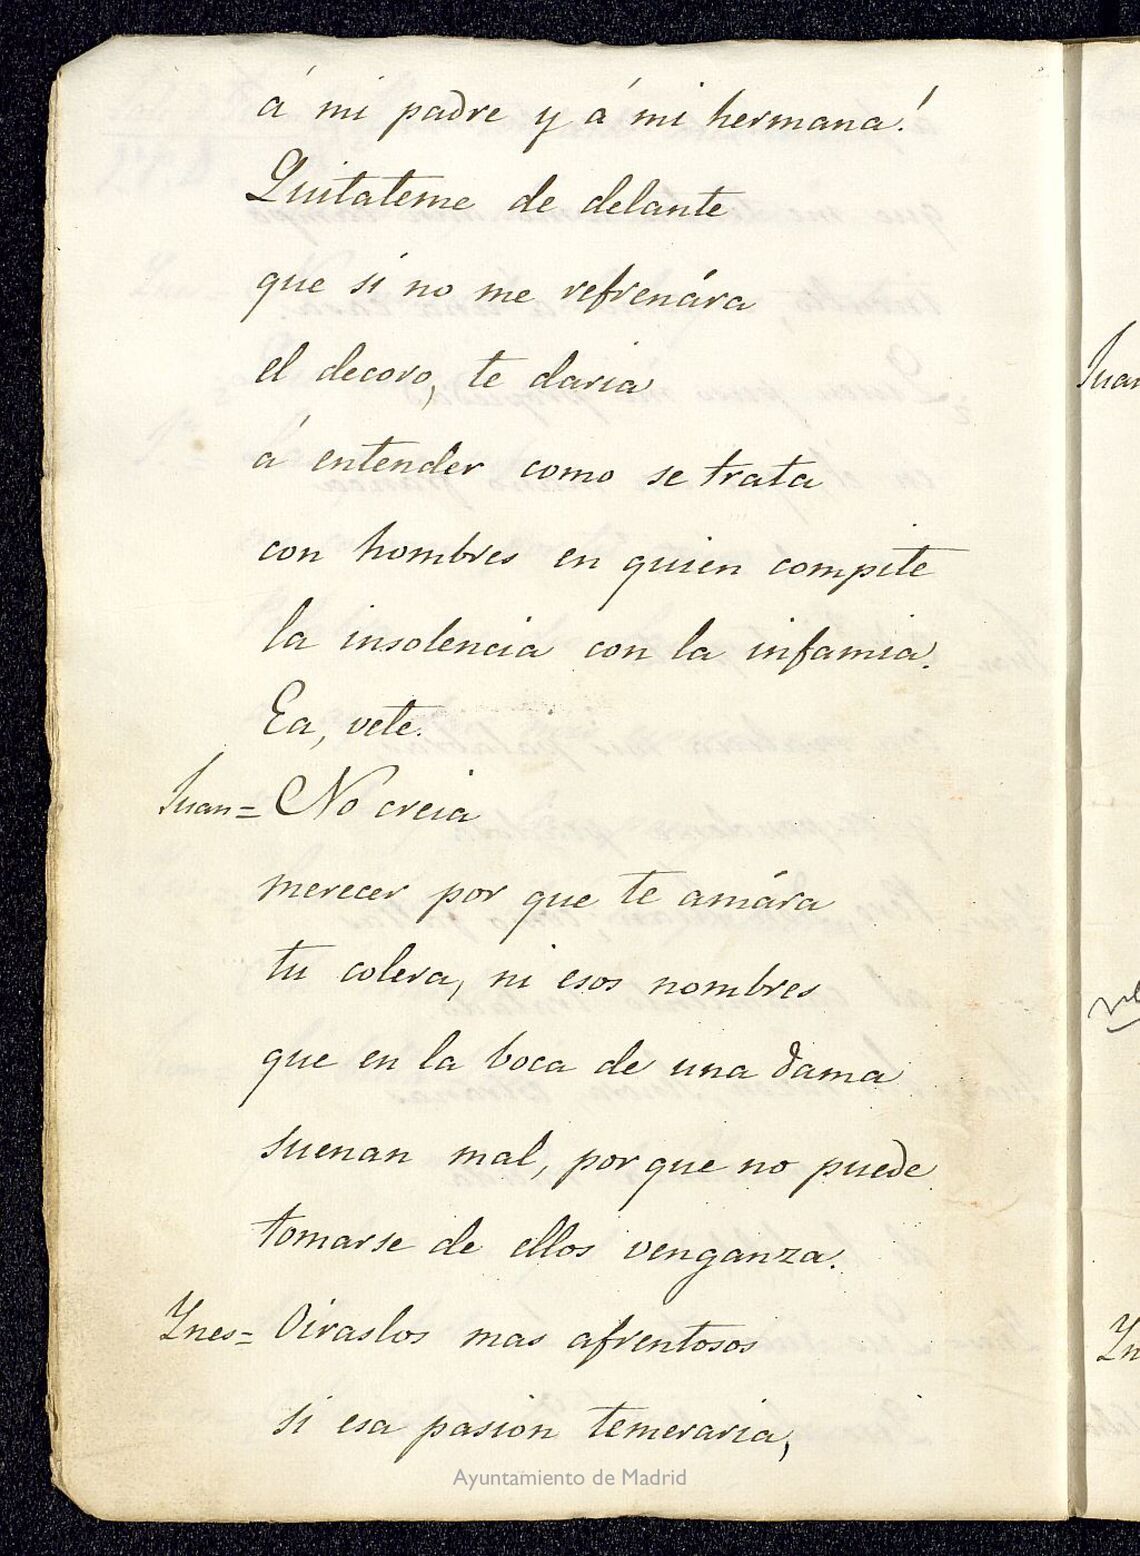 á mi padre y á mi hermana!
Quitateme de delante
que si no me refrenára
el decoro, te daria
á entender como se trata
con hombres en quien compite
la insolencia con la infamia.
Ea, vete.
Juan= No creia
merecer por que te amára
tu colera, ni esos nombres
que en la boca de una dama
suenan mal, por que no puede
tomarse de ellos venganza.
Ynes= Oiraslos mas afrentosos
si esa pasion temeraria,
Ayuntamiento de Madrid
Juan
Yn